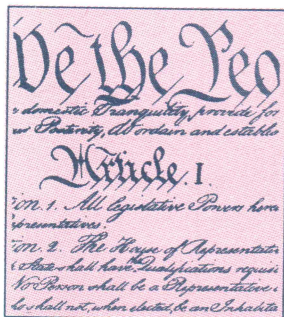 We the Peo
s domestic Tranquility, provide for
ur Posterity, do ordain and establis
Article. I.
ion 1. All legislative Powers here
epresentatives.
ion. 2. The House of Representati
h State shall have the Qualifications requisi
No Person shall be a Representative
ho shall not, when elected, be an Inhabita